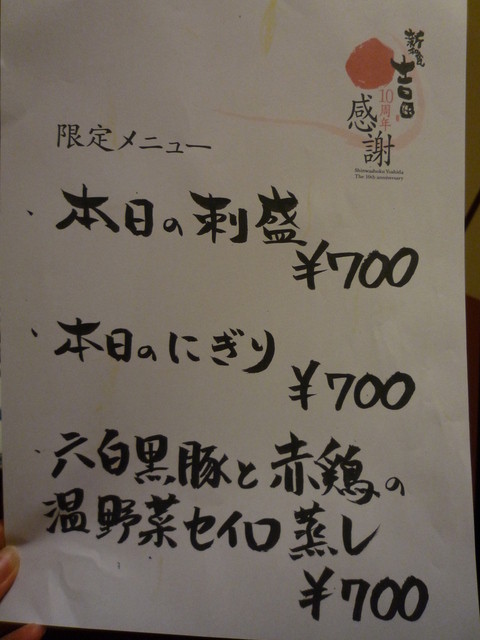 新和食
吉田
10周年
感謝
Shinwashoku Yoshida
The 10th anniversary
限定メニュー
、本日の刺盛
¥700
、本日のにぎり
¥700
、六白黒豚と赤鶏の
温野菜セイロ蒸し
¥700